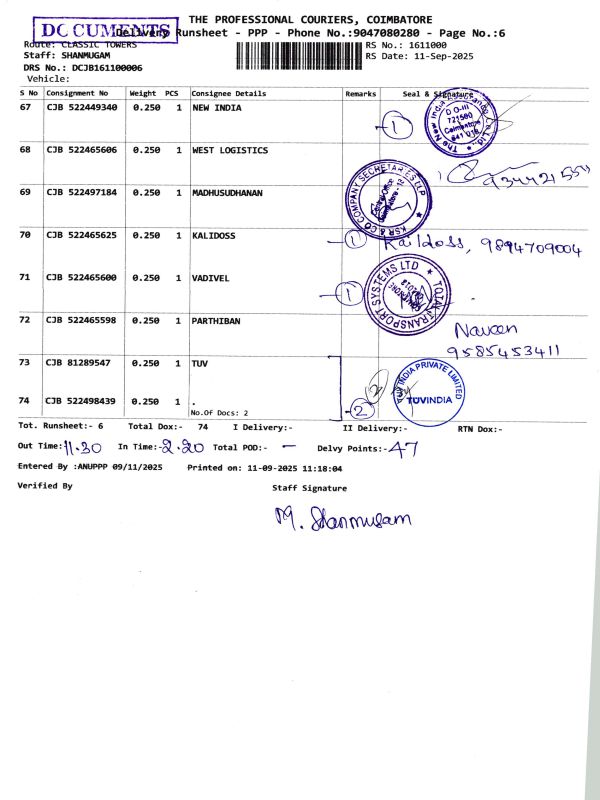 THE PROFESSIONAL COURIERS, COIMBATORE
DOCUMENTS
Delivery Runsheet - PPP - Phone No.:9047080280 - Page No.:6
Route: CLASSIC TOWERS
RS No.: 1611000
Staff: SHANMUGAM
RS Date: 11-Sep-2025
DRS No.: DCJB161100006
Vehicle:
S No Consignment No Weight PCS Consignee Details Remarks Seal & Signature
67 CJB 522449340 0.250 1 NEW INDIA
1
The New India
D O-III
721500
Coimbatore
641 018
68 CJB 522465606 0.250 1 WEST LOGISTICS
69 CJB 522497184 0.250 1 MADHUSUDHANAN
KSR & CO COMPANY SECRETARIES LLP
Coimbatore - 18
70 CJB 522465625 0.250 1 KALIDOSS
1 Kaildoss, 9894709004
71 CJB 522465600 0.250 1 VADIVEL
1
TOTAL TRANSPORT SYSTEMS LTD
72 CJB 522465598 0.250 1 PARTHIBAN
Naveen
9585453411
73 CJB 81289547 0.250 1 TUV
2
INDIA PRIVATE LIMITED
TUVINDIA
74 CJB 522498439 0.250 1 .
No.Of Docs: 2
2
Tot. Runsheet:- 6 Total Dox:- 74 I Delivery:- II Delivery:- RTN Dox:-
Out Time:- 11.30 In Time:- 2.20 Total POD:- - Delvy Points:- 47
Entered By :ANUPPP 09/11/2025 Printed on: 11-09-2025 11:18:04
Verified By Staff Signature
M. Shanmugam